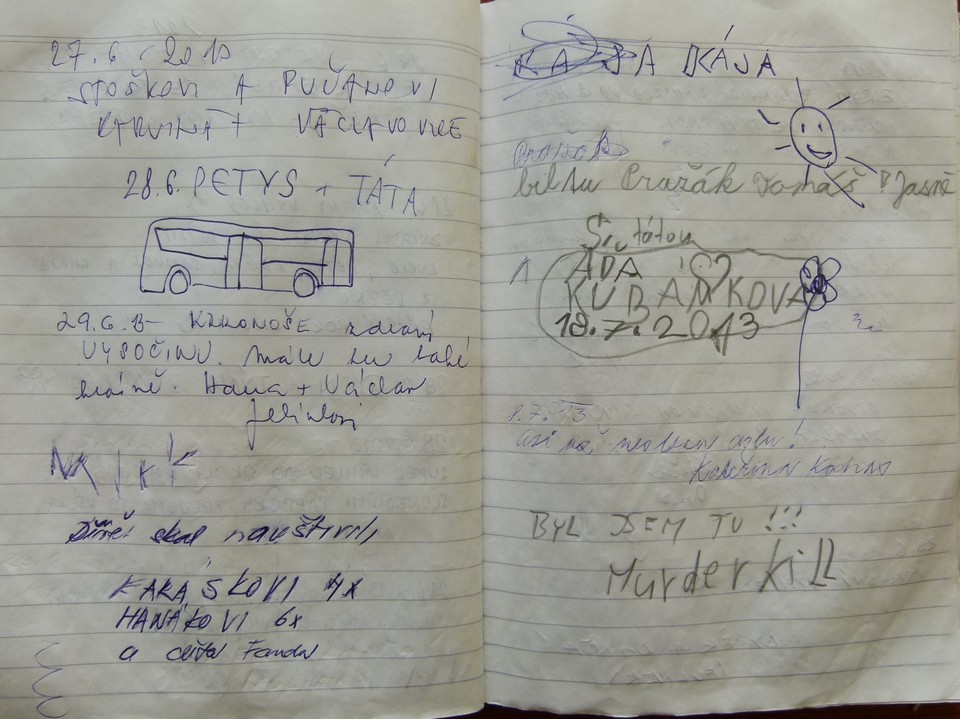 27.6. 2013
STOŠKOVI A PUČANOVI
KARVINÁ + VÁCLAVOVICE
28.6. PETYS + TÁTA
29.6.13 - KRKONOŠE zdraví
VYSOČINU. Máte to také
krásné. Hana + Václav
Jelínkovi
MIKK
skal navštívili
KARÁSKOVI 4x
HANÁKOVI 6x
a Fanda
KÁJA KÁJA
Pražák
byl tu Pražák Tomáš ! Jasně
S tátou
ADA
KUBÁNKOVA
18.7.2013
1.7.13
Kateřina
BYL JSEM TU !!!
Murderkill